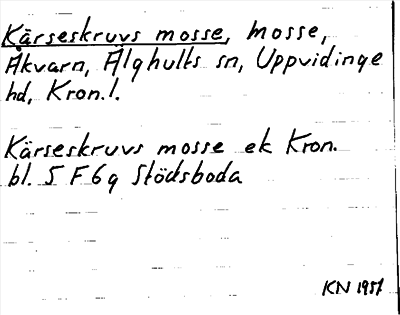 Kärseskruvs mosse, mosse,
Åkvarn, Älghults sn, Uppvidinge
hd, Kron. l.
Kärseskruvs mosse ek Kron.
bl. 5 F 6 g Stödsboda
KN 1957